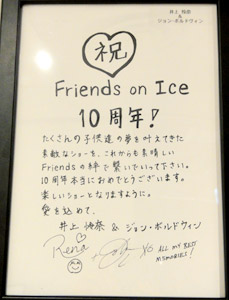 井上 怜奈
&
ジョン・ボルドウィン
祝
Friends on Ice
10周年!
たくさんの子供達の夢を叶えてきた
素敵なショーを、これからも素晴らしい
Friendsの絆で繋いでいって下さい。
10周年本当におめでとうございます。
楽しいショーとなりますように。
愛を込めて、
井上 怜奈 & ジョン・ボルドウィン
Rena
XO ALL MY BEST
MEMORIES!